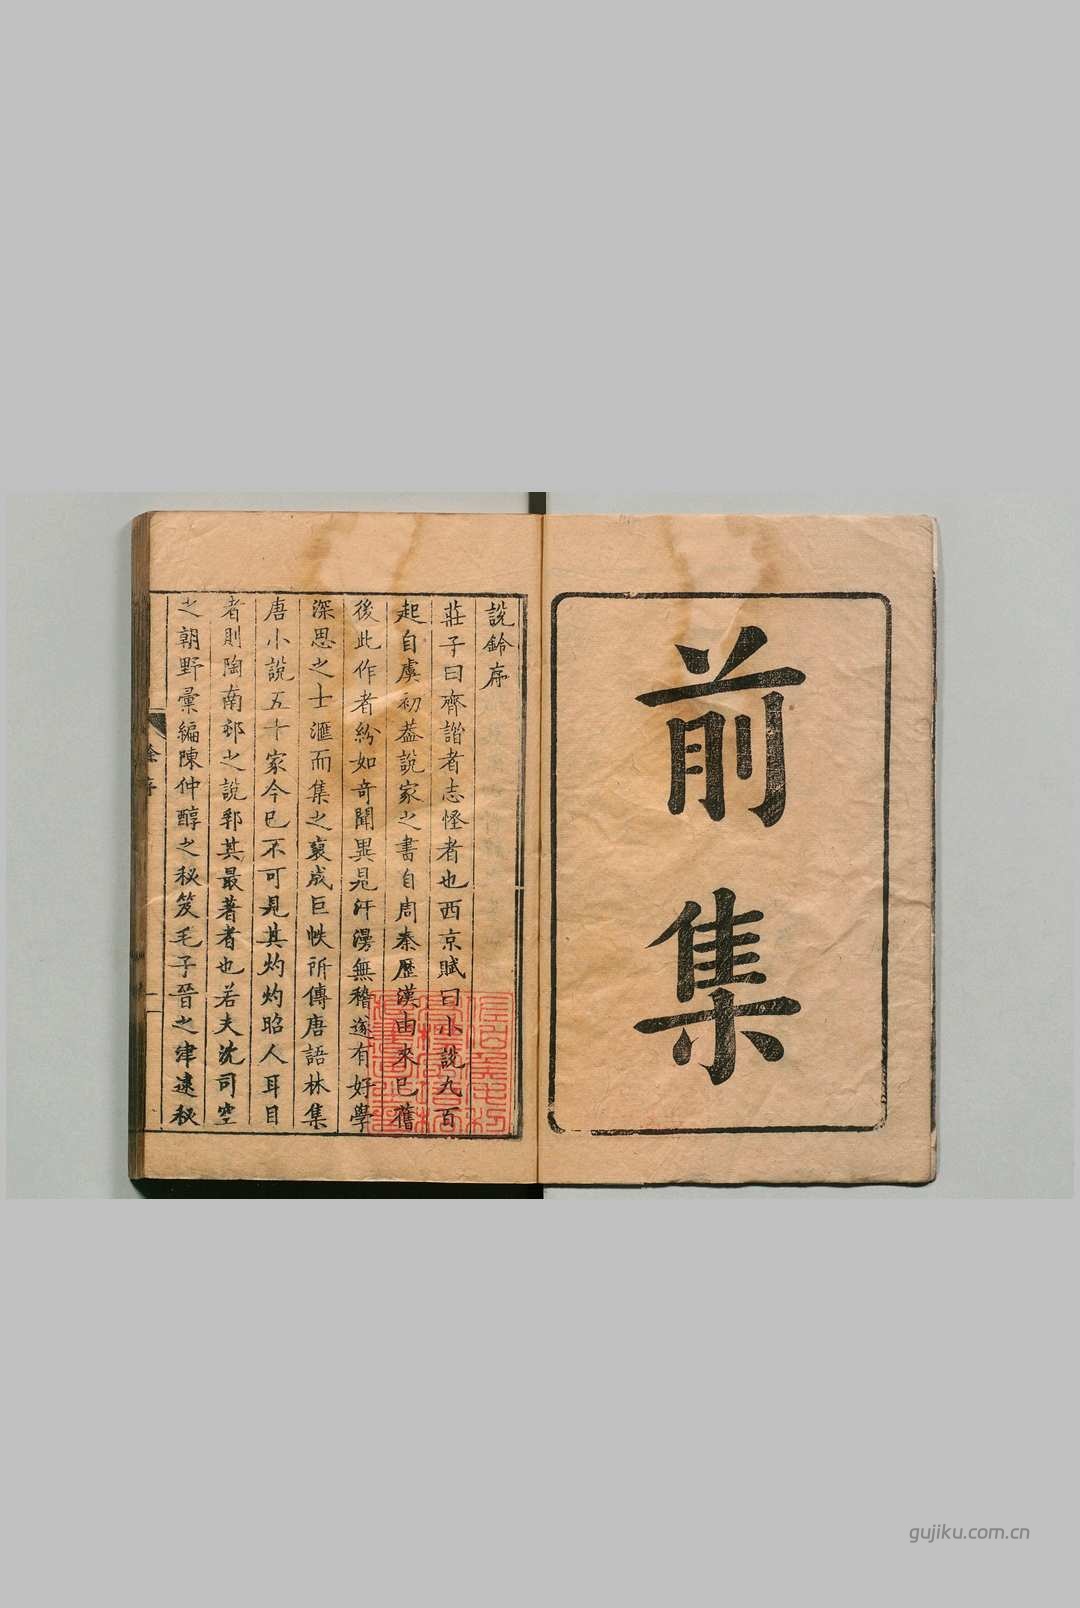 前集
說鈴序
莊子曰齊諧者志怪者也西京賦曰小說九百
起自虞初葢說家之書自周秦歷漢由來已舊
後此作者紛如奇聞異見汗漫無稽遂有好學
深思之士滙而集之裒成巨帙所傳唐語林集
唐小說五十家今已不可見其灼灼昭人耳目
者則陶南邨之說郛其最著者也若夫沈司空
之朝野彙編陳仲醇之秘笈毛子晉之津逮秘
gujiku.com.cn